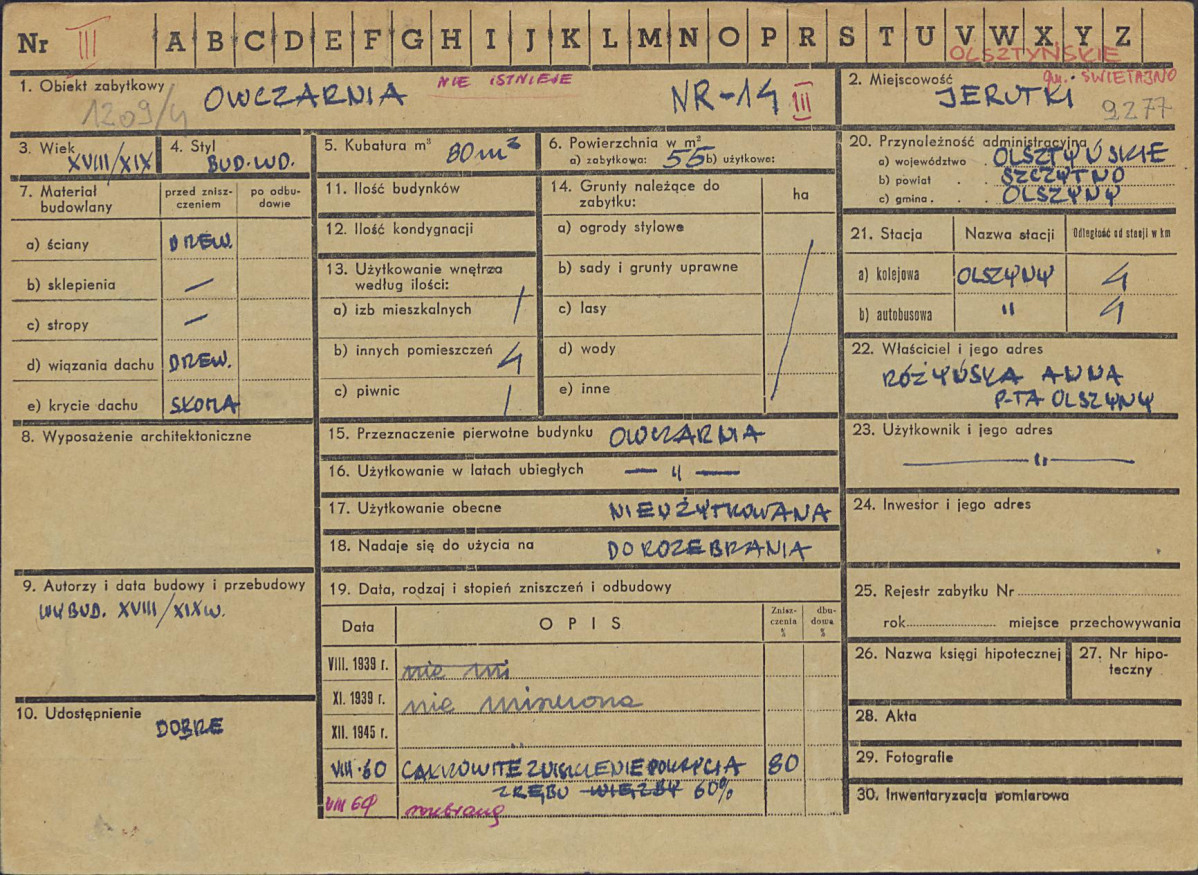 Nr III A B C D E F G H I J K L M N O P R S T U V W X Y Z
OLSZTYŃSKIE
1. Obiekt zabytkowy OWCZARNIA NIE ISTNIEJE NR-14 III
1209/4
2. Miejscowość gm. ŚWIĘTAJNO
JERUTKI 9277
3. Wiek XVIII/XIX
4. Styl BUD. WD.
5. Kubatura m³ 80 m³
6. Powierzchnia w m²
a) zabytkowa: 55 b) użytkowe:
7. Materiał budowlany
przed zniszczeniem
po odbudowie
a) ściany DREW.
b) sklepienia —
c) stropy —
d) wiązania dachu DREW.
e) krycie dachu SŁOMA
8. Wyposażenie architektoniczne
9. Autorzy i data budowy i przebudowy
WYBUD. XVIII/XIX W.
10. Udostępnienie
DOBRE
11. Ilość budynków
12. Ilość kondygnacji
13. Użytkowanie wnętrza
według ilości:
a) izb mieszkalnych /
b) innych pomieszczeń 4
c) piwnic /
14. Grunty należące do
zabytku:
ha
a) ogrody stylowe
b) sady i grunty uprawne
c) lasy
d) wody
e) inne
15. Przeznaczenie pierwotne budynku OWCZARNIA
16. Użytkowanie w latach ubiegłych — " —
17. Użytkowanie obecne NIEUŻYTKOWANA
18. Nadaje się do użycia na DO ROZEBRANIA
19. Data, rodzaj i stopień zniszczeń i odbudowy
Data
OPIS
Zniszczenia %
dbudowa %
VIII. 1939 r. nie ni
XI. 1939 r. nie niszczona
XII. 1945 r.
VIII.60 CAŁKOWITE ZNISZCZENIE POKRYCIA 80
ZRĘBU WIĘŹBY 60%
VIII 64 rozebrany
20. Przynależność administracyjna
a) województwo . OLSZTYŃSKIE
b) powiat . . SZCZYTNO
c) gmina . . . OLSZYNY
21. Stacja
Nazwa stacji
Odległość od stacji w km
a) kolejowa OLSZYNY 4
b) autobusowa " 4
22. Właściciel i jego adres
RÓŻYŃSKA ANNA
P-TA OLSZYNY
23. Użytkownik i jego adres
— " —
24. Inwestor i jego adres
25. Rejestr zabytku Nr
rok miejsce przechowywania
26. Nazwa księgi hipotecznej
27. Nr hipoteczny
28. Akta
29. Fotografie
30. Inwentaryzacja pomiarowa